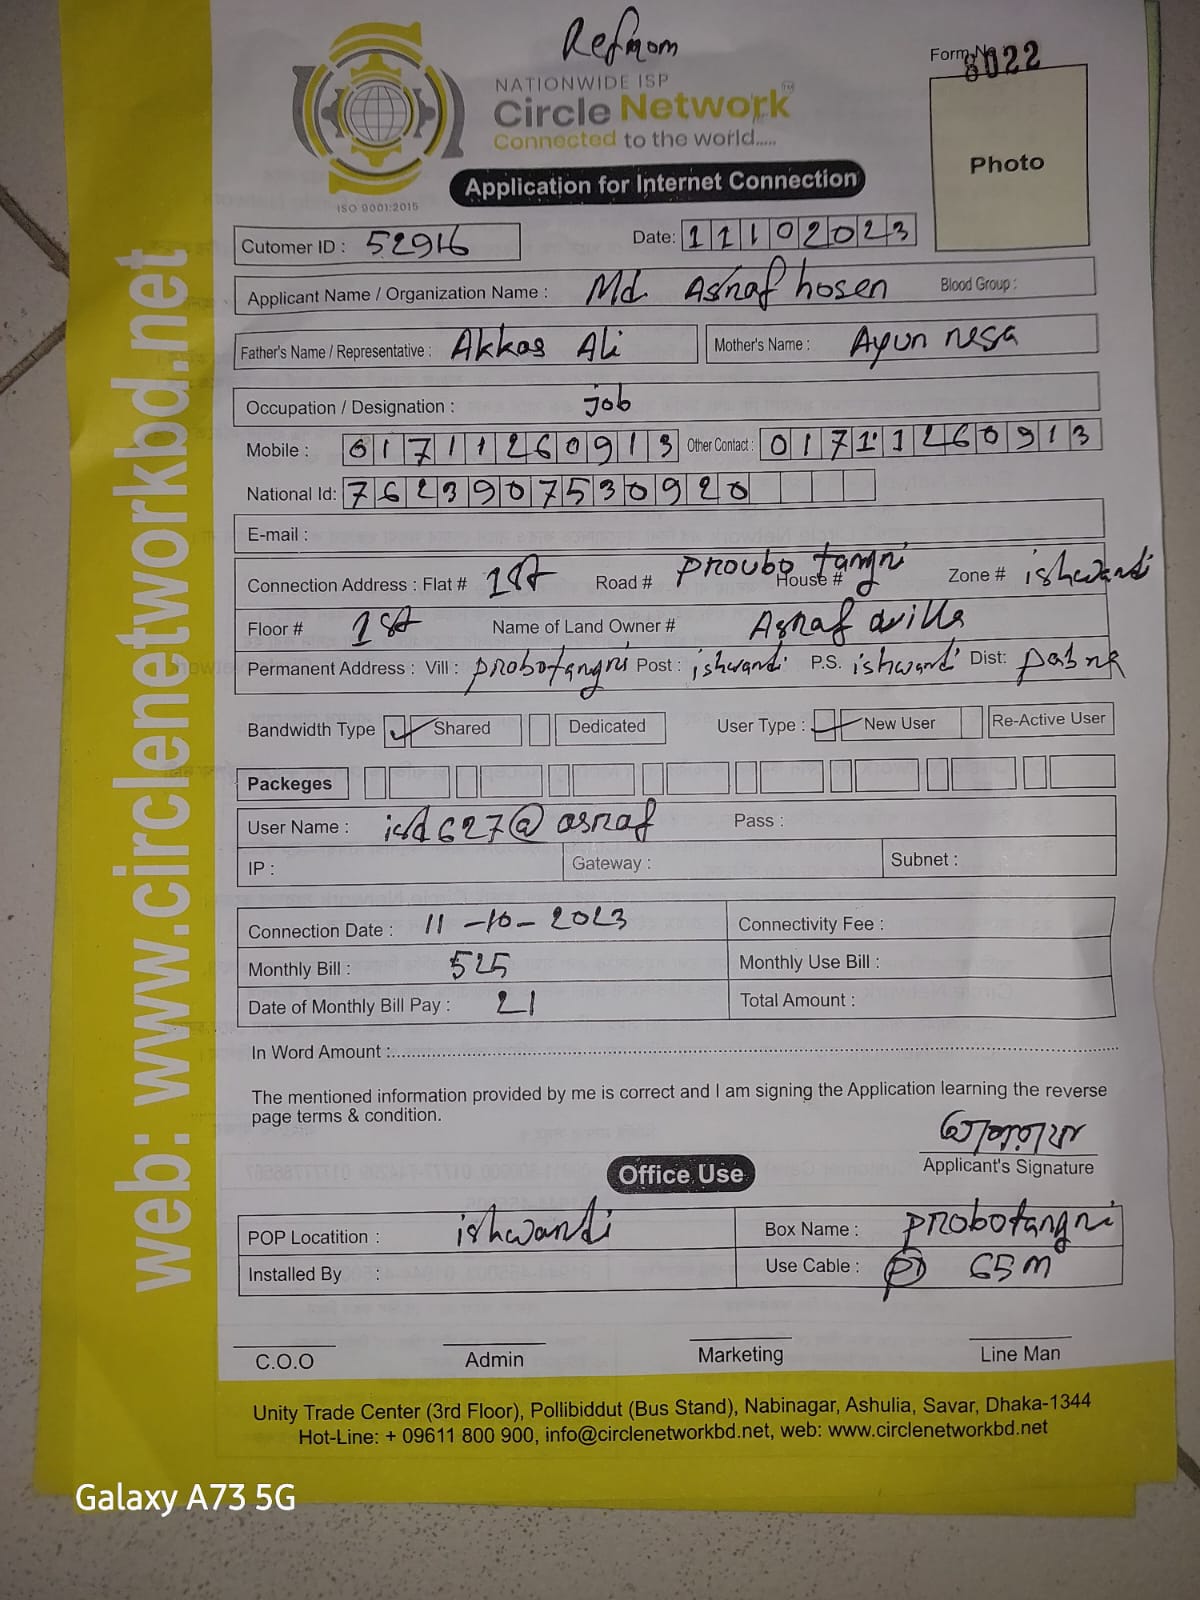 Refmom
Form No 8022
NATIONWIDE ISP
Circle Network TM
Connected to the world.....
ISO 9001:2015
Application for Internet Connection
Photo
web: www.circlenetworkbd.net
Cutomer ID : 52916 Date: 11102023
Applicant Name / Organization Name : Md Asraf hosen Blood Group :
Father's Name / Representative : Akkas Ali Mother's Name : Ayun nesa
Occupation / Designation : job
Mobile : 01711260913 Other Contact : 01711260913
National Id: 7623907530920
E-mail :
Connection Address : Flat # 1st Road # Proubo tangri House # Zone # ishwardi
Floor # 1st Name of Land Owner # Asraf villa
Permanent Address : Vill : probotangri Post : ishwardi P.S. ishwardi Dist: pabna
Bandwidth Type ✓ Shared Dedicated User Type : ✓ New User Re-Active User
Packeges
User Name : isd627@asraf Pass :
IP : Gateway : Subnet :
Connection Date : 11-10-2023 Connectivity Fee :
Monthly Bill : 525 Monthly Use Bill :
Date of Monthly Bill Pay : 21 Total Amount :
In Word Amount :
The mentioned information provided by me is correct and I am signing the Application learning the reverse
page terms & condition.
Applicant's Signature
Office Use
POP Locatition : ishwardi Box Name : probotangri
Installed By : Use Cable : 65m
C.O.O Admin Marketing Line Man
Unity Trade Center (3rd Floor), Pollibiddut (Bus Stand), Nabinagar, Ashulia, Savar, Dhaka-1344
Hot-Line: + 09611 800 900, info@circlenetworkbd.net, web: www.circlenetworkbd.net
Galaxy A73 5G